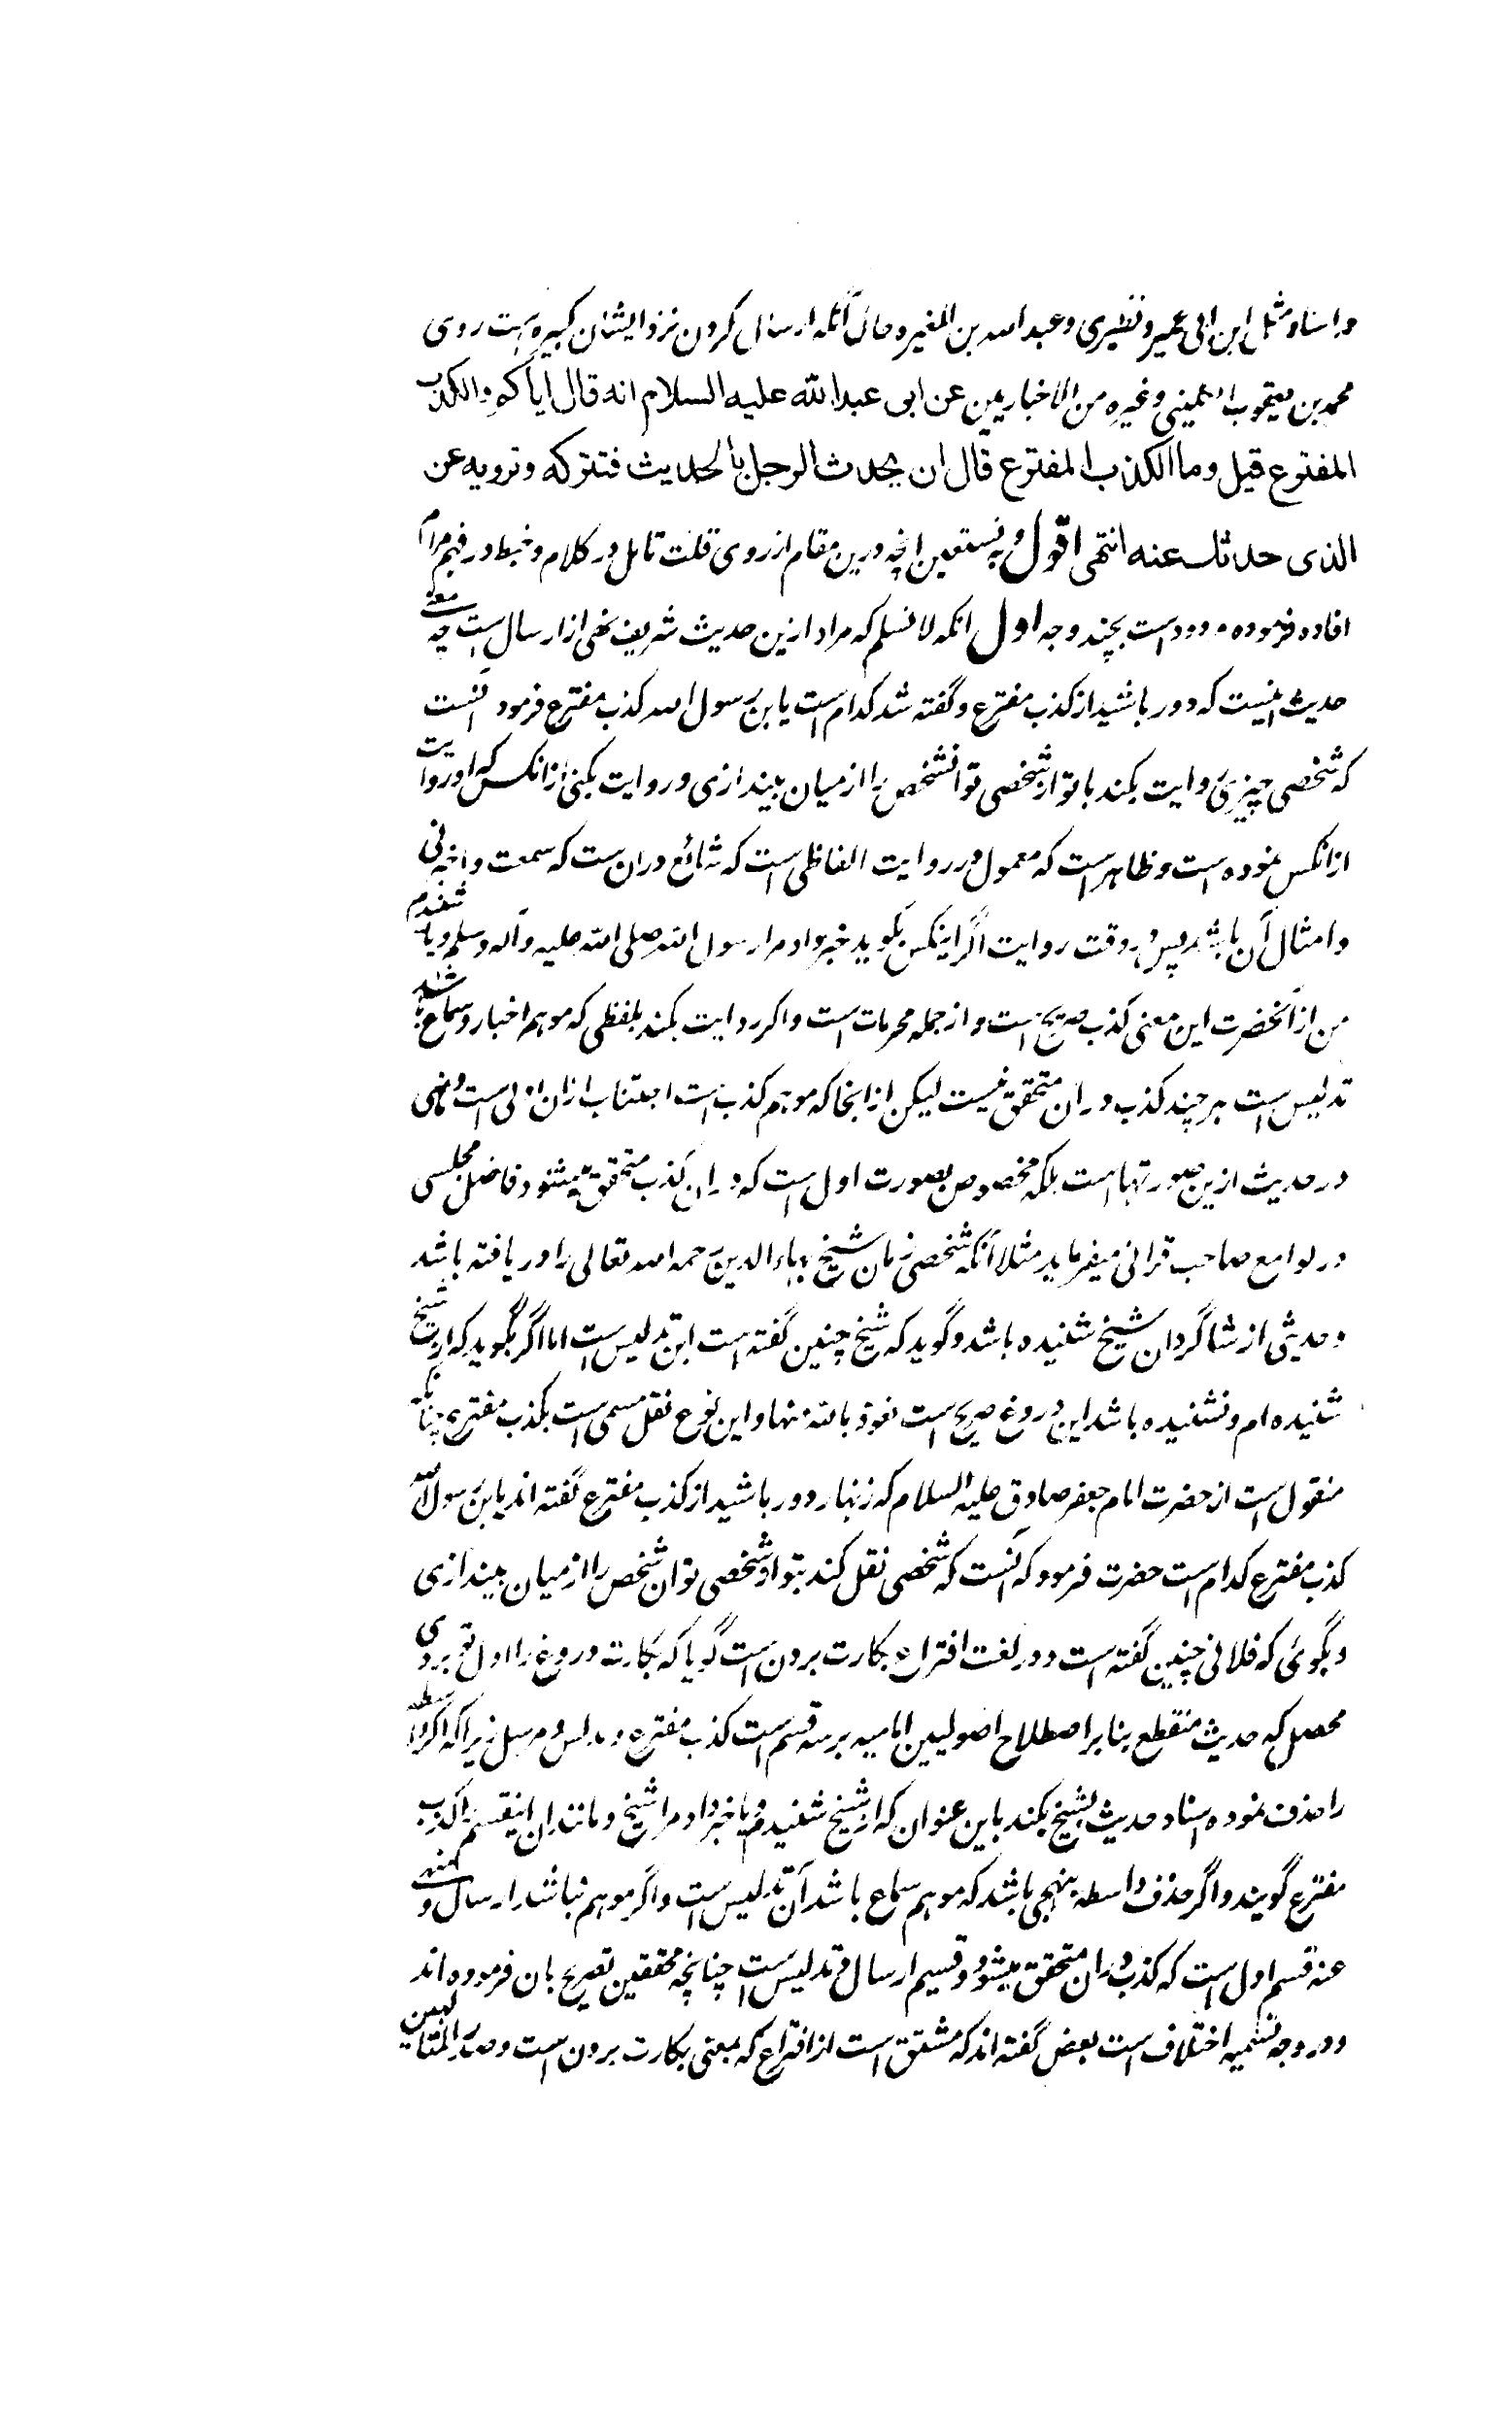 و اسناد مثل ابن ابی عمیر و نظیری و عبد الله بن المغیر و حال آنکه ارسال کردن نزد ایشان کبیره است روی
محمد بن یعقوب الکلینی وغیره من الاخباریین عن ابی عبد الله علیه السلام انه قال ایاکم والکذب
المفترع قیل وما الکذب المفترع قال ان یحدث الرجل بالحدیث فتترکه وترویه عن
الذی حدثک عنه انتهی اقول و به نستعین انچه درین مقام از روی قلت تامل در کلام و خبط در فهم مرام
افاده فرموده مردود است بچند وجه اول انکه لا نسلم که مراد ازین حدیث شریف نهی از ارسال است چه معنی
حدیث اینست که دور باشید از کذب مفترع و گفته شد کدام است یابن رسول الله کذب مفترع فرمود آنست
که شخصی چیزی روایت بکند با تو از شخصی تو انشخص را از میان بیندازی و روایت بکنی از انکس که او روایت
از انکس نموده است و ظاهر است که معمول در روایت الفاظی است که شائع دران ست که سمعت و اخبرنی
و امثال آن باشد پس در وقت روایت اگر اینکس بگوید خبر داد مرا رسول الله صلی الله علیه وآله وسلم و یا شنیدم
من از آنحضرت این معنی کذب صریح است و از جمله محرمات است و اکر روایت بکند بلفظی که موهم اخبار و سماع باشد
تدلیس است هر چند کذب دران متحقق نیست لیکن از انجا که موهم کذب است اجتناب ازان اولی است و نهی
در حدیث ازین صورتها است بلکه مخصوص بصورت اول است که دران کذب متحقق میشود فاضل مجلسی
در لوامع صاحب قرانی میفرماید مثلا آنکه شخصی زمان شیخ بهاء الدین رحمه الله تعالی را دریافته باشد
و حدیثی از شاگردان شیخ شنیده باشد و گوید که شیخ چنین گفته است این تدلیس است اما اگر بگوید که از شیخ
شنیده ام و نشنیده باشد این دروغ صریح است نعوذ بالله منها و این نوع نقل مسمی است بکذب مفترع چنانکه
منقول است از حضرت امام جعفر صادق علیه السلام که زنهار دور باشید از کذب مفترع گفته اند یابن رسول الله
کذب مفترع کدام است حضرت فرمود که آنست که شخصی نقل کند بتو از شخصی تو ان شخص را از میان بیندازی
و بگوئی که فلانی چنین گفته است و در لغت افتراع بکارت بردن است گویا که بکارت دروغ را اول تو بردی
محصل که حدیث منقطع بنا بر اصطلاح اصولیین امامیه بر سه قسم است کذب مفترع و مدلس و مرسل زیرا که اکر واسطه
را حذف نموده اسناد حدیث بشیخ بکند باین عنوان که از شیخ شنیدم و یا خبر داد مرا شیخ و مانند ان اینقسم را کذب
مفترع گویند و اگر حذف واسطه بنهجی باشد که موهم سماع باشد آن تدلیس است و اگر موهم نباشد ارسال و
عنه قسم اول است که کذب دران متحقق میشود و قسیم ارسال و تدلیس است چنانچه محققین تصریح بان فرموده اند
و در وجه تسمیه اختلاف است بعض گفته اند که مشتق است از افتراع که بمعنی بکارت بردن است و صدر المتالهین